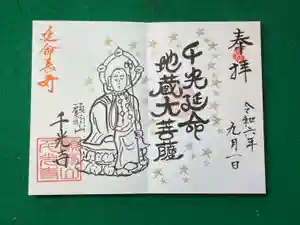 奉拝
令和六年
九月一日
千光延命
地蔵大菩薩
千光寺
延命長寿